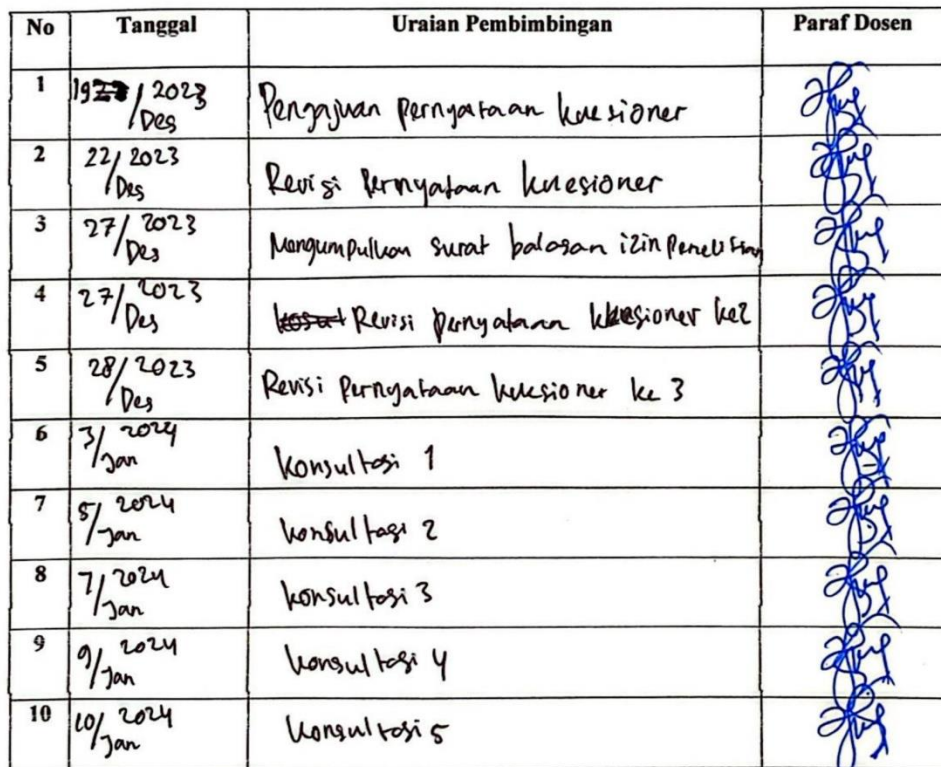 No Tanggal Uraian Pembimbingan Paraf Dosen
1 19/Des 2023 Pengajuan pernyataan kuesioner
2 22/Des 2023 Revisi Pernyataan kuesioner
3 27/Des 2023 Mengumpulkan surat balasan izin penelitian
4 27/Des 2023 Revisi pernyataan kuesioner ke2
5 28/Des 2023 Revisi Pernyataan kuesioner ke 3
6 3/Jan 2024 Konsultasi 1
7 5/Jan 2024 konsultasi 2
8 7/Jan 2024 konsultasi 3
9 9/Jan 2024 konsultasi 4
10 10/Jan 2024 konsultasi 5